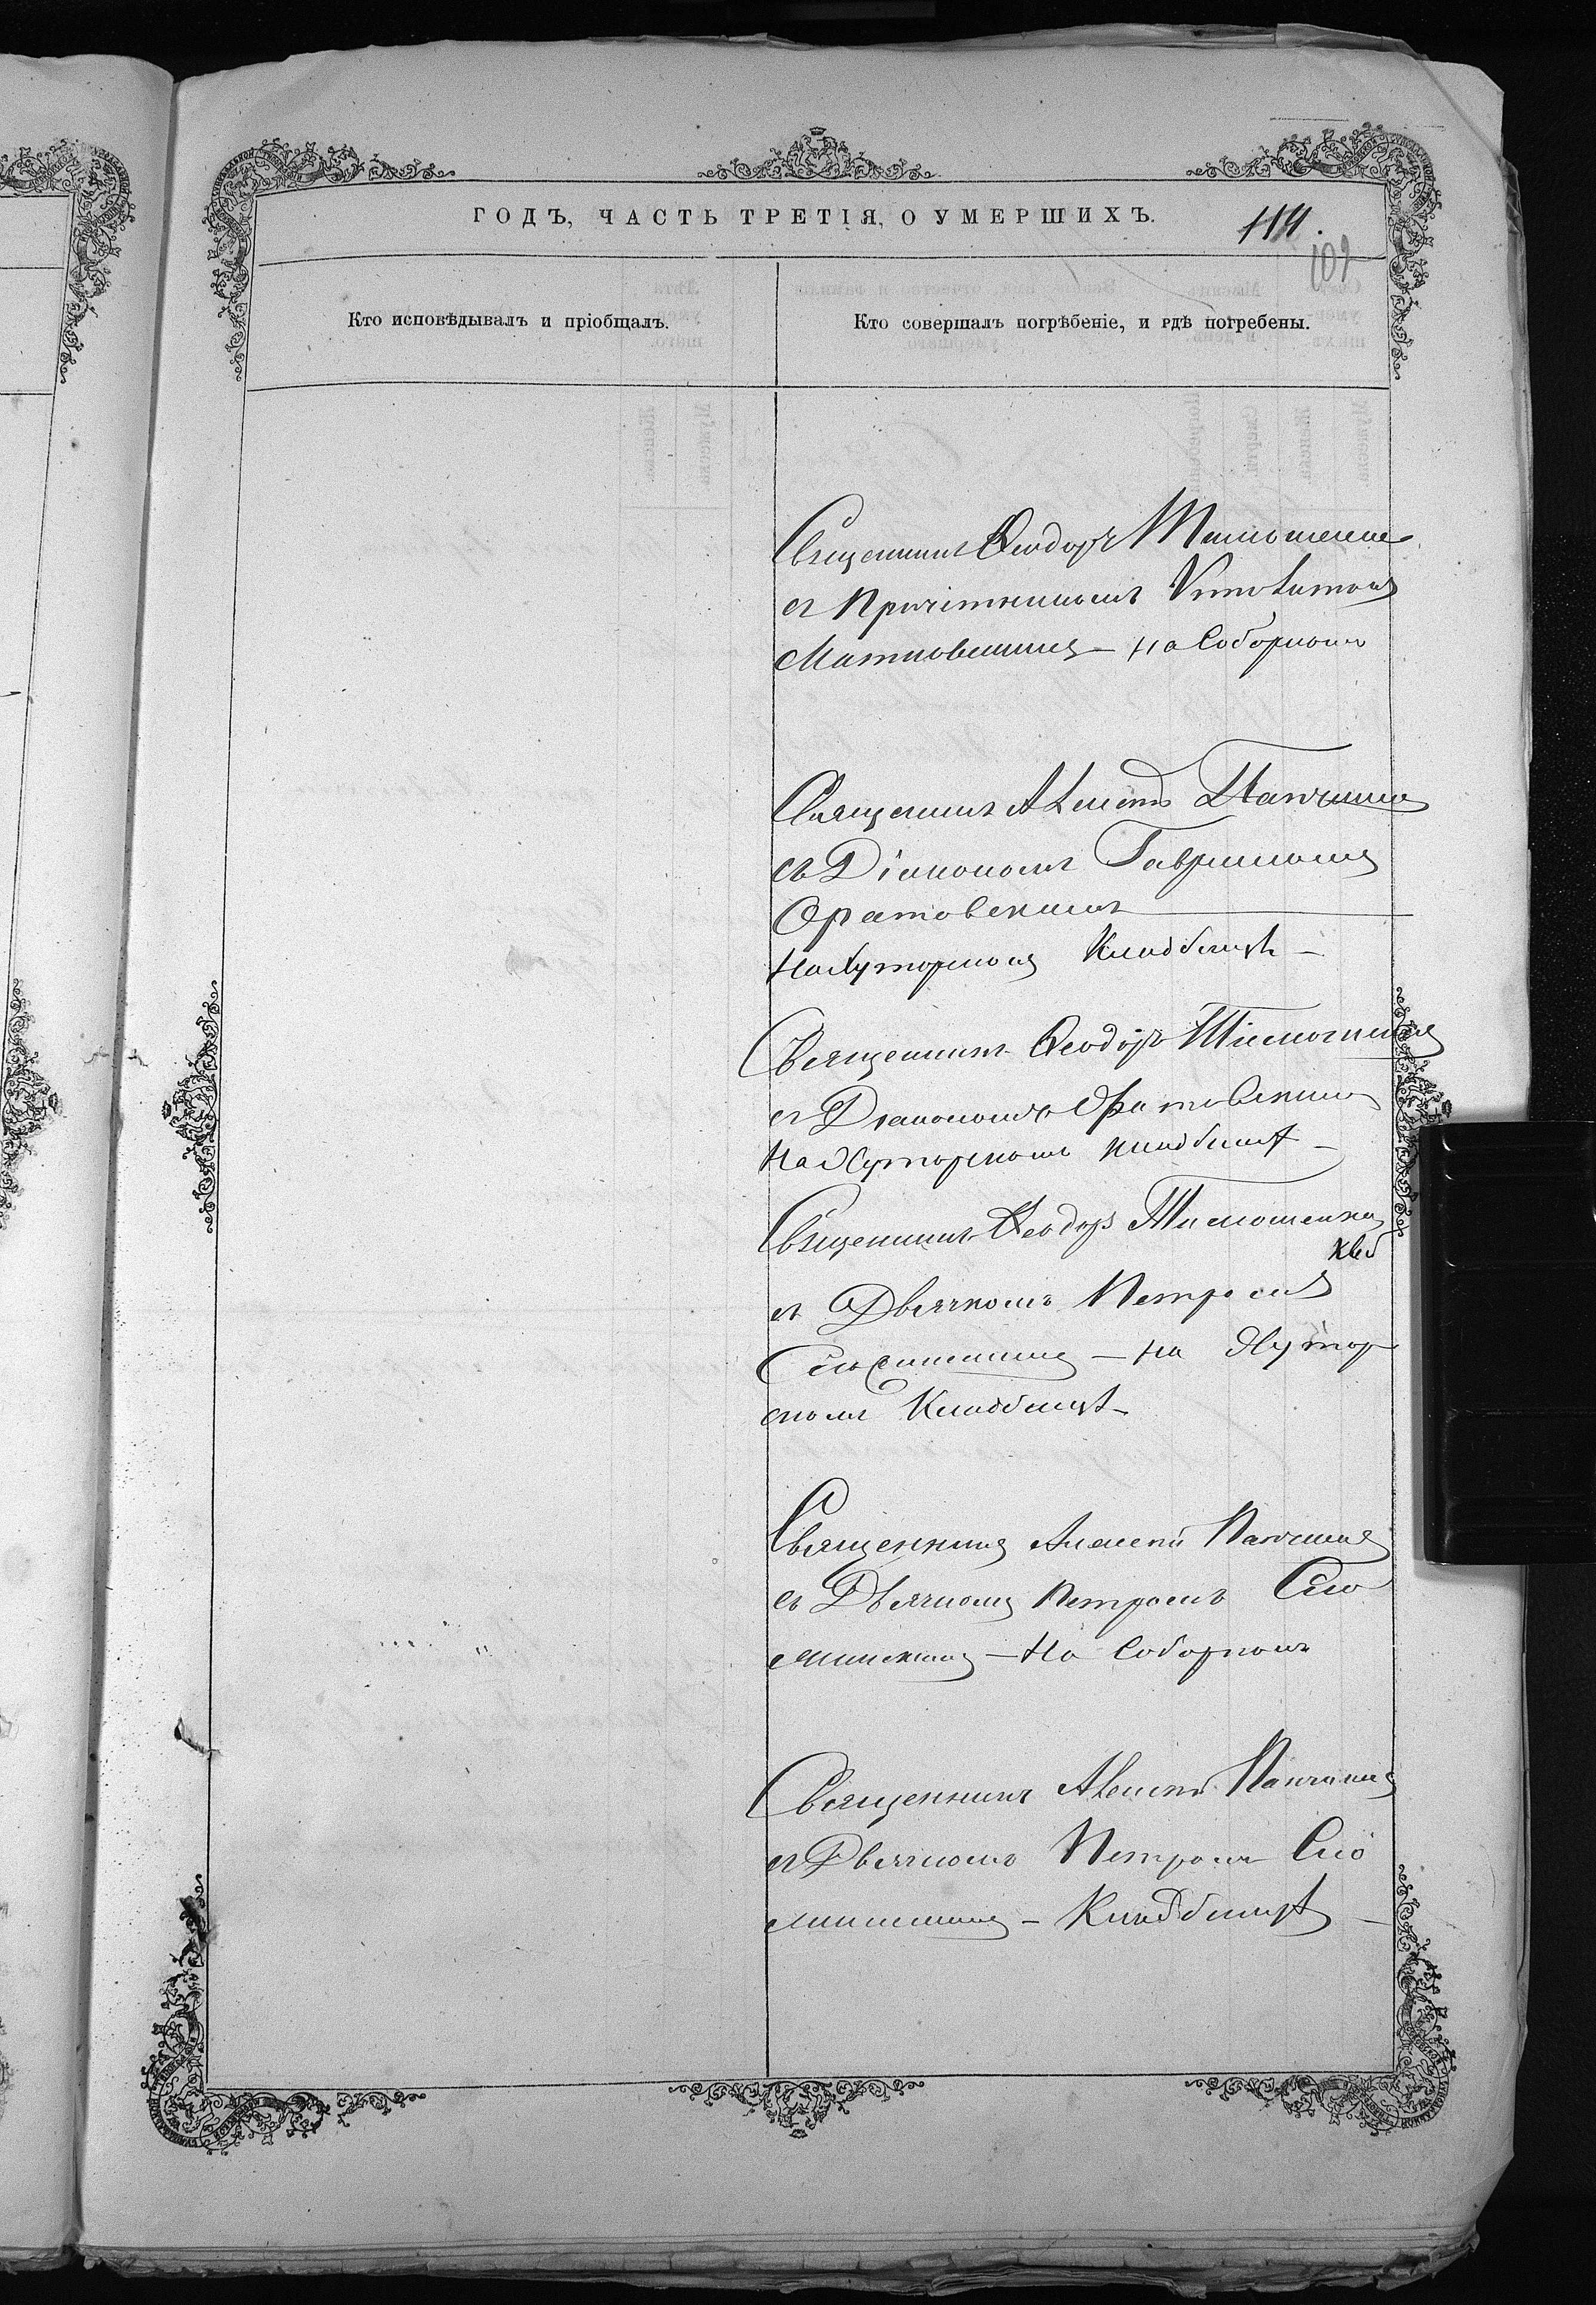 ГОДЪ, ЧАСТЬ ТРЕТІЯ, О УМЕРШИХЪ.
114.
102
Кто исповѣдывалъ и пріобщалъ.
Кто совершалъ погрѣбеніе, и гдѣ погребены.
Священникъ Ѳеодоръ Тимошенко
съ Причетникомъ
на Соборномъ
Священникъ Алексѣй Панчинъ
съ Діакономъ Гавриломъ
Оратовскимъ
на Хуторномъ Кладбищѣ —
Священникъ Ѳеодоръ
съ Діакономъ Оратовскимъ
на Хуторномъ кладбищѣ —
Священникъ Ѳеодоръ Тимошенко
съ Дьячкомъ Петромъ
— на Хутор
номъ Кладбищѣ —
Священникъ Алексѣй Панчинъ
съ Дьячкомъ Петромъ Сло
— на Соборномъ
Священникъ Алексѣй Панчинъ
съ Дьячкомъ Петромъ Сло
— Кладбищѣ —